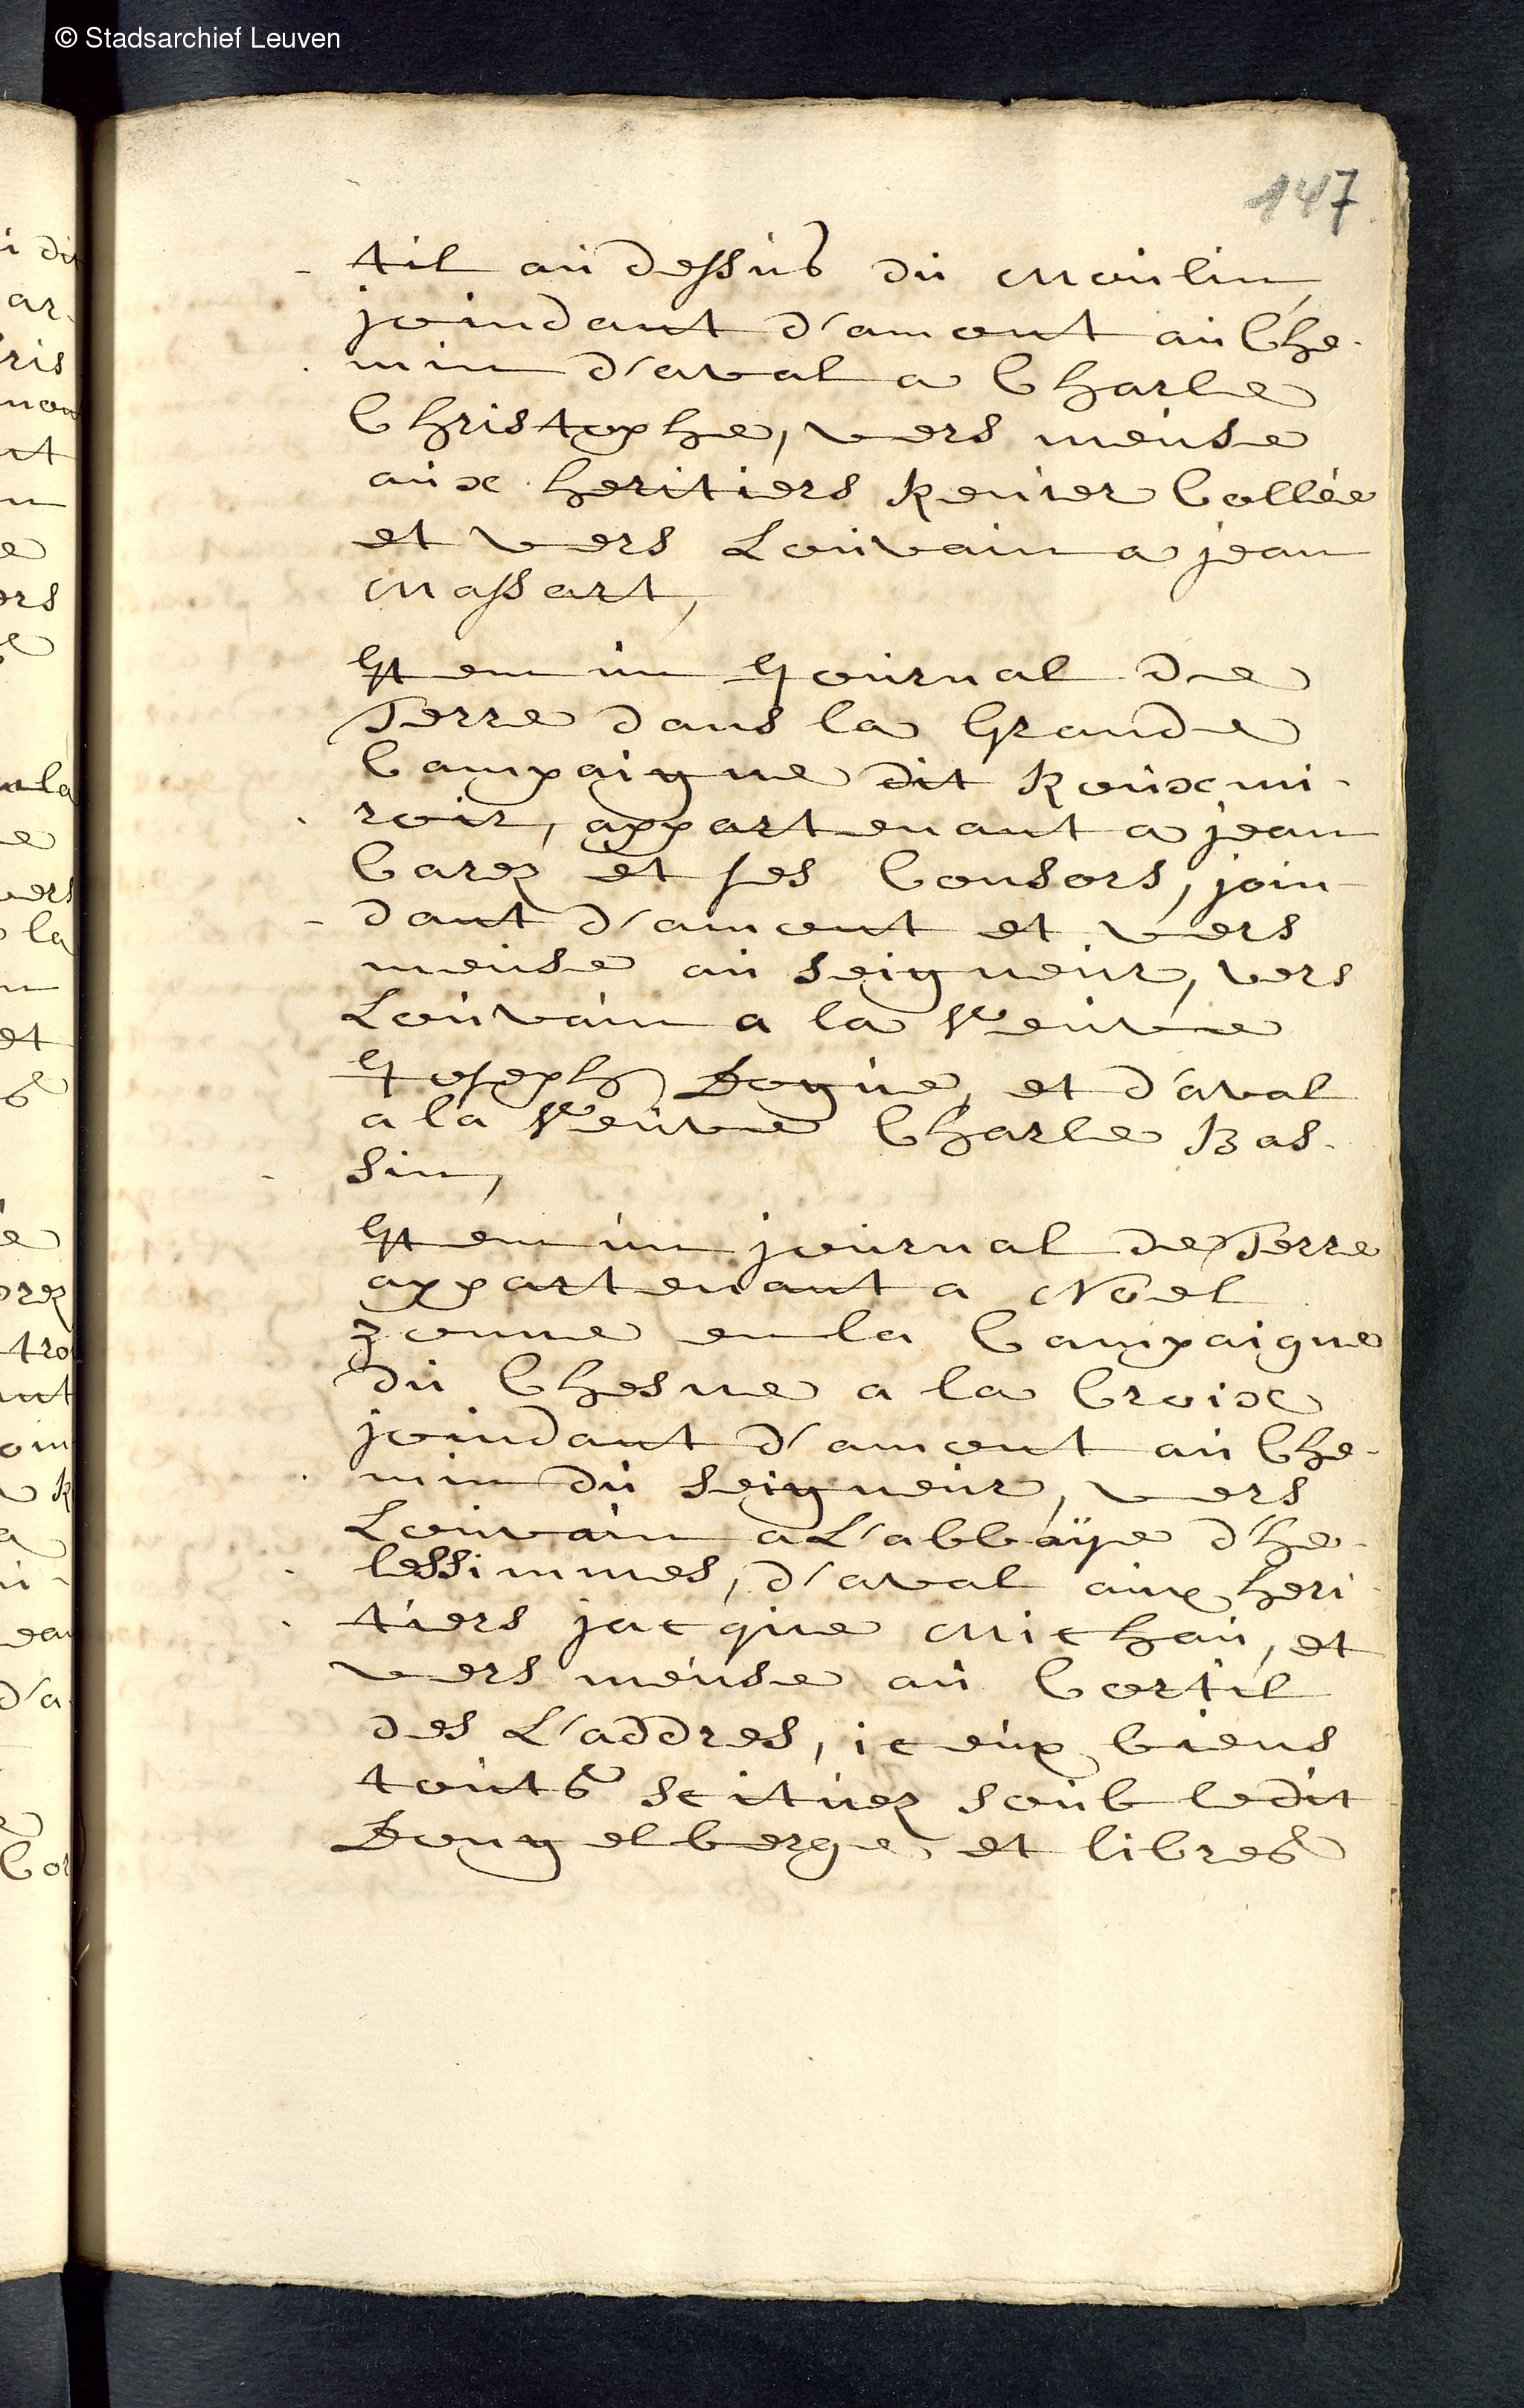 © Stadsarchief Leuven
147
til au dessus du Moulin,
joindant d'amont au Che-
min d'aval a Charle
Christophe, vers meuse
aux heritiers Renier Collée
et vers Louvain a jean
Massart,
Item un Journal de
Terre dans la Grande
Campaigne dit Rouxmi-
roir, appartenant a jean
Carez et ses Consors, join-
dant d'amont et vers
meuse au seigneur, vers
Louvain a la Veuve
Joseph Dogne, et d'aval
a la Veuve Charle Bas-
sin,
Item un journal de Terre
appartenant a Noel
Zonne en la Campaigne
du Chesne a la Croix
joindant d'amont au Che-
min du seigneur, vers
Louvain a L'abbaÿe d'he-
lessimmes, d'aval aux heri-
tiers jacque Michau, et
vers meuse au Cortil
des L'addres, iceux biens
touts scituez soub ledit
Dongelberge et libres